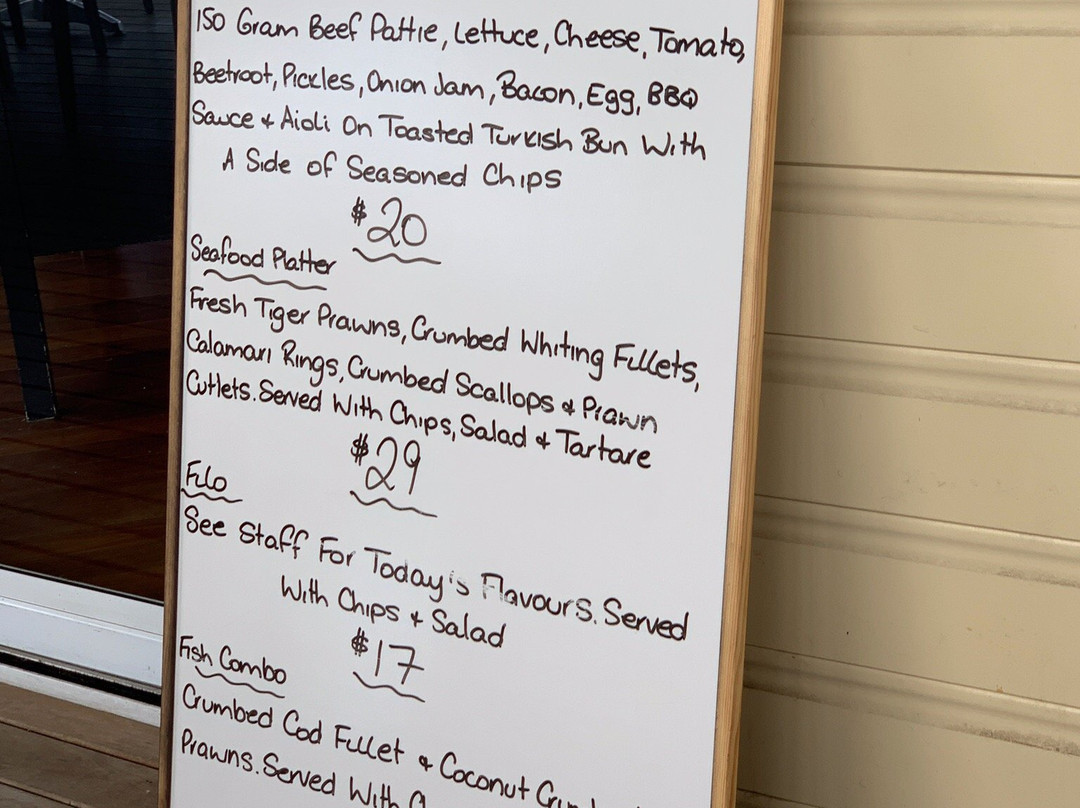 150 Gram Beef Pattie, Lettuce, Cheese, Tomato,
Beetroot, Pickles, Onion Jam, Bacon, Egg, BBQ
Sauce & Aioli On Toasted Turkish Bun With
A Side of Seasoned Chips
$20
Seafood Platter
Fresh Tiger Prawns, Crumbed Whiting Fillets,
Calamari Rings, Crumbed Scallops & Prawn
Cutlets. Served With Chips, Salad & Tartare
$29
Filo
See Staff For Today's Flavours. Served
With Chips & Salad
$17
Fish Combo
Crumbed Cod Fillet & Coconut
Prawns. Served With